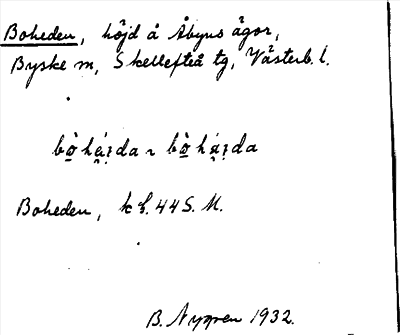 Boheden, höjd å Åbyns ägor,
Byske m, Skellefteå tg, Västerb. l.
bò̠há̤i̯da ~ bò̠há̤i̯da
Boheden, k bl. 44 S. M.
B. Nygren 1932.